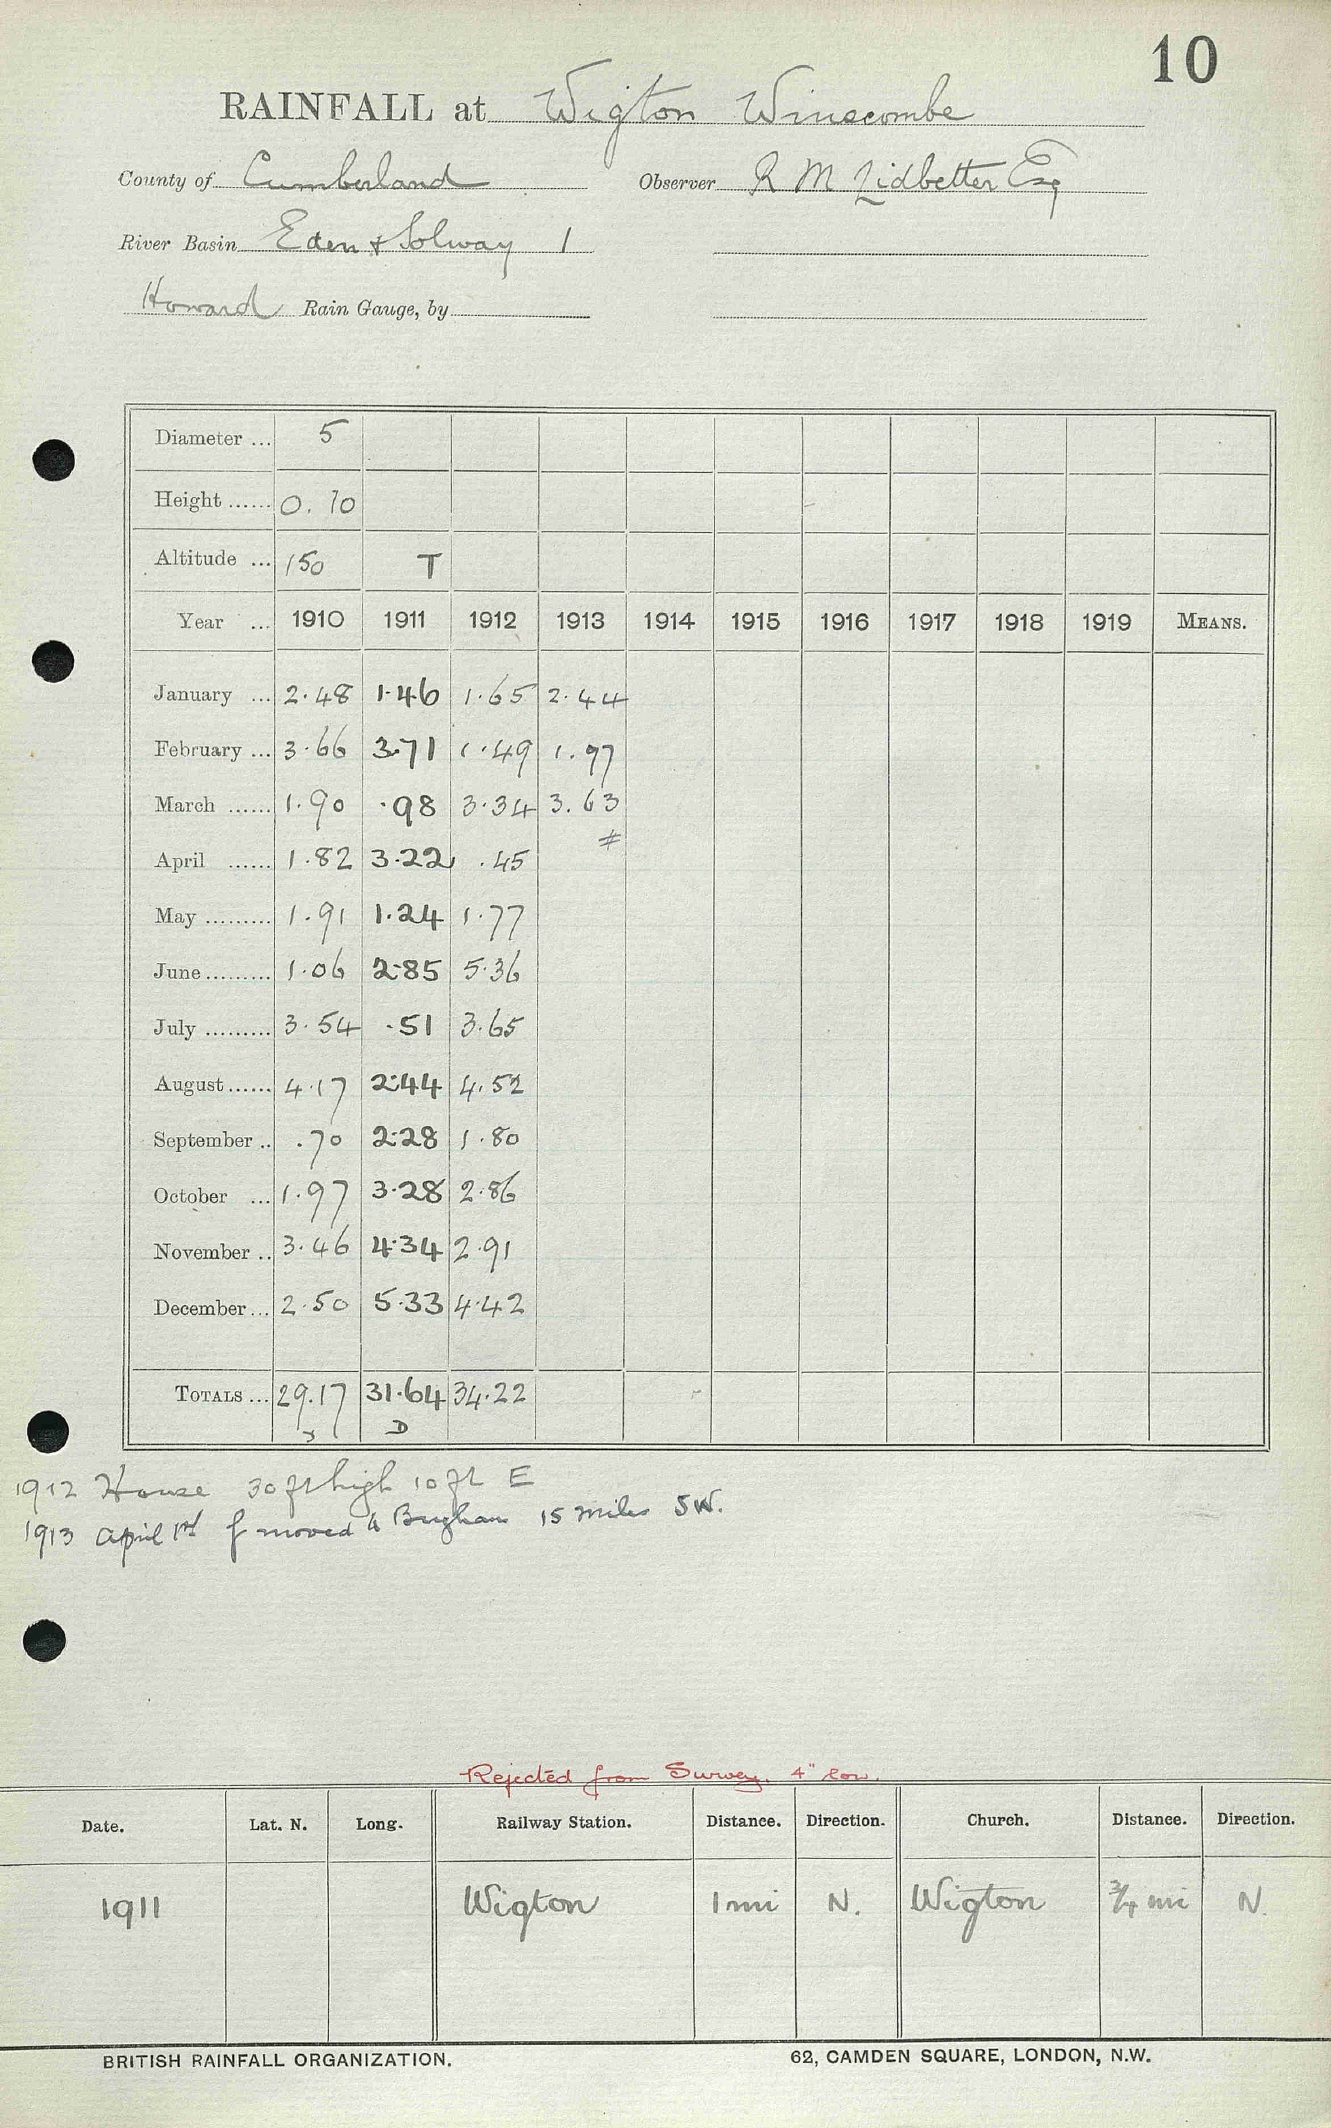 10
RAINFALL at Wigton Winscombe
County of Cumberland Observer R M Lidbetter Esq
River Basin Eden & Solway 1
Howard Rain Gauge, by
Diameter ... 5
Height ...... 0. 10
Altitude ... 150 T
Year ... 1910 1911 1912 1913 1914 1915 1916 1917 1918 1919 MEANS.
January ... 2.48 1.46 1.65 2.44
February ... 3.66 3.71 1.49 1.97
March ...... 1.90 .98 3.34 3.63
≠
April ...... 1.82 3.22 .45
May ......... 1.91 1.24 1.77
June ......... 1.06 2.85 5.36
July ......... 3.54 .51 3.65
August ...... 4.17 2.44 4.52
September .. .70 2.28 1.80
October ... 1.97 3.28 2.86
November .. 3.46 4.34 2.91
December ... 2.50 5.33 4.42
TOTALS ... 29.17 31.64 34.22
D
1912 House 30 ft high 10 ft E
1913 April 1st moved to Brigham 15 miles SW.
Rejected from Survey. 4" low.
Date. Lat. N. Long. Railway Station. Distance. Direction. Church. Distance. Direction.
1911 Wigton 1 mi N. Wigton 3/4 mi N.
BRITISH RAINFALL ORGANIZATION. 62, CAMDEN SQUARE, LONDON, N.W.